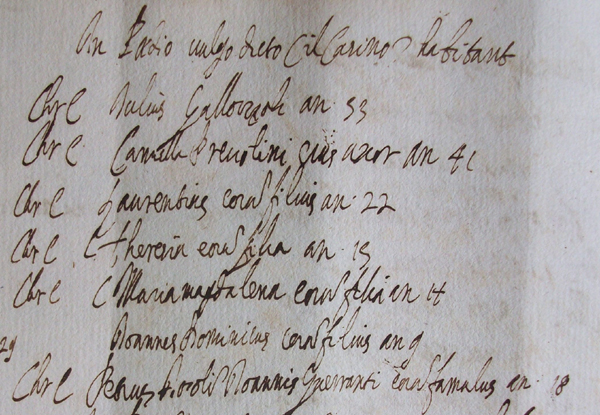 In Podio vulgo dicto (il Casino) habitant
Chr C Julius Gallozzoli an 53
Chr C Camilla eius uxor an 41
Chr C Laurentius eorum filius an 22
Chr C C Theresia eorum filia an 15
Chr C C Mariamagdalena eorum filia an 14
Joannes Dominicus eorum filius an 9
29
Chr C Joannis eorum famulus an 18